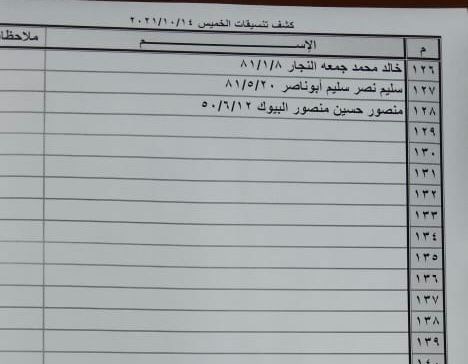 كشف تنسيقات الخميس ٢٠٢١/١٠/١٤
م الإســـــــم ملاحظا
١٢٦ خالد محمد جمعه النجار ٨١/١/٨
١٢٧ سليم نصر سليم أبوناصر ٨١/٥/٢٠
١٢٨ منصور حسين منصور البيوك ٥٠/٦/١٢
١٢٩
١٣٠
١٣١
١٣٢
١٣٣
١٣٤
١٣٥
١٣٦
١٣٧
١٣٨
١٣٩
١٤٠